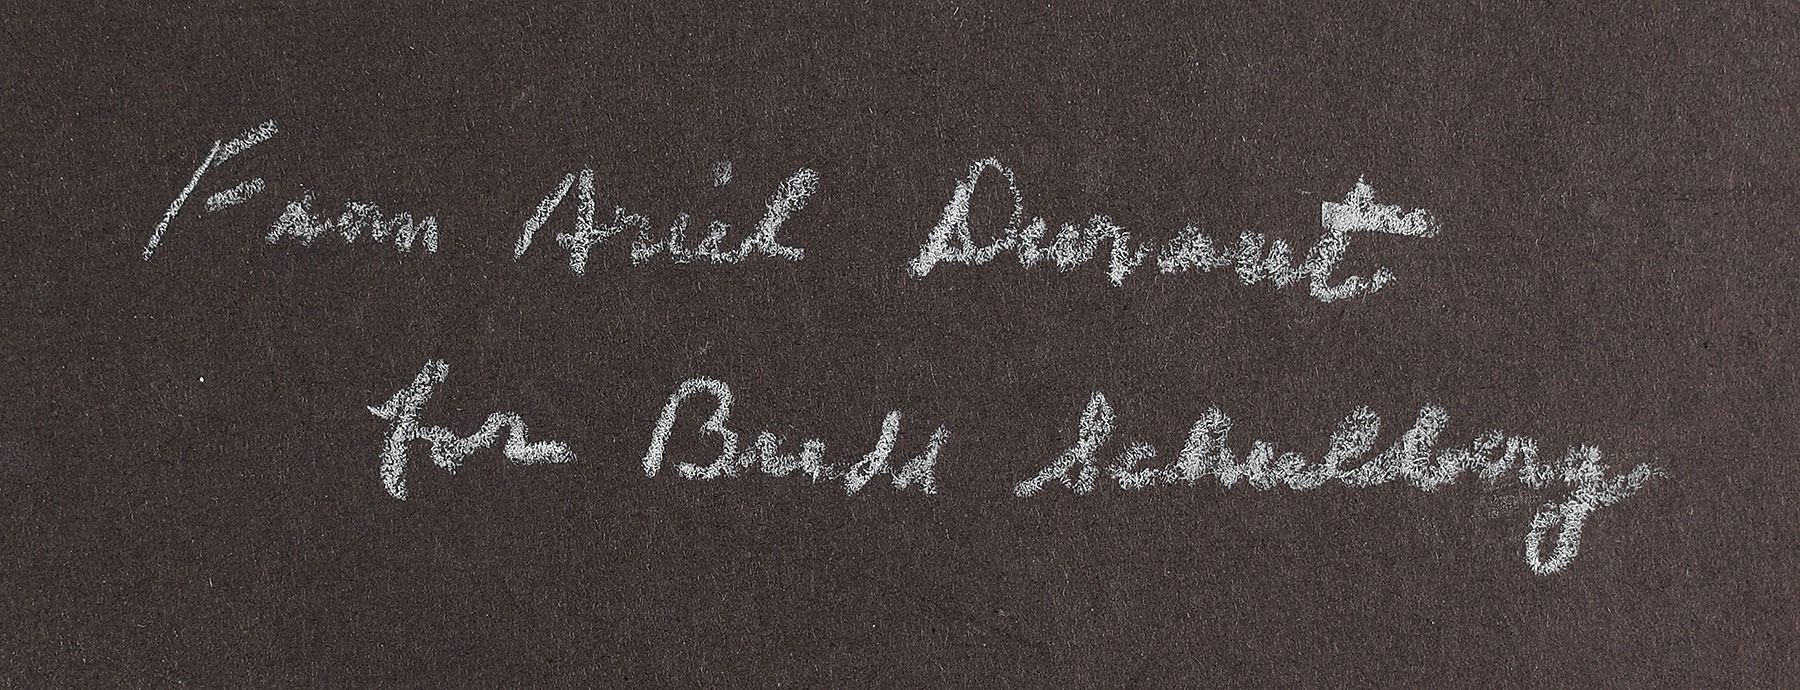 From Ariel Durant
for Budd Schulberg